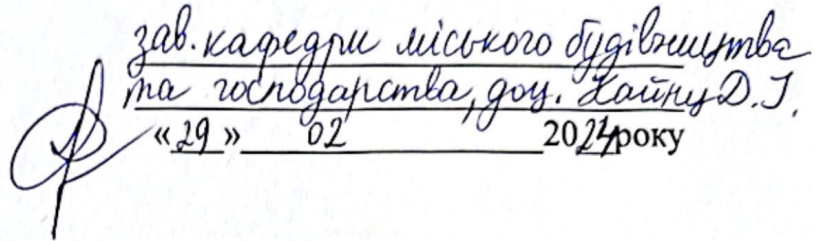 зав. кафедри міського будівництва
та господарства, доц. Хайну Д. І.
« 29 » 02 2024 року